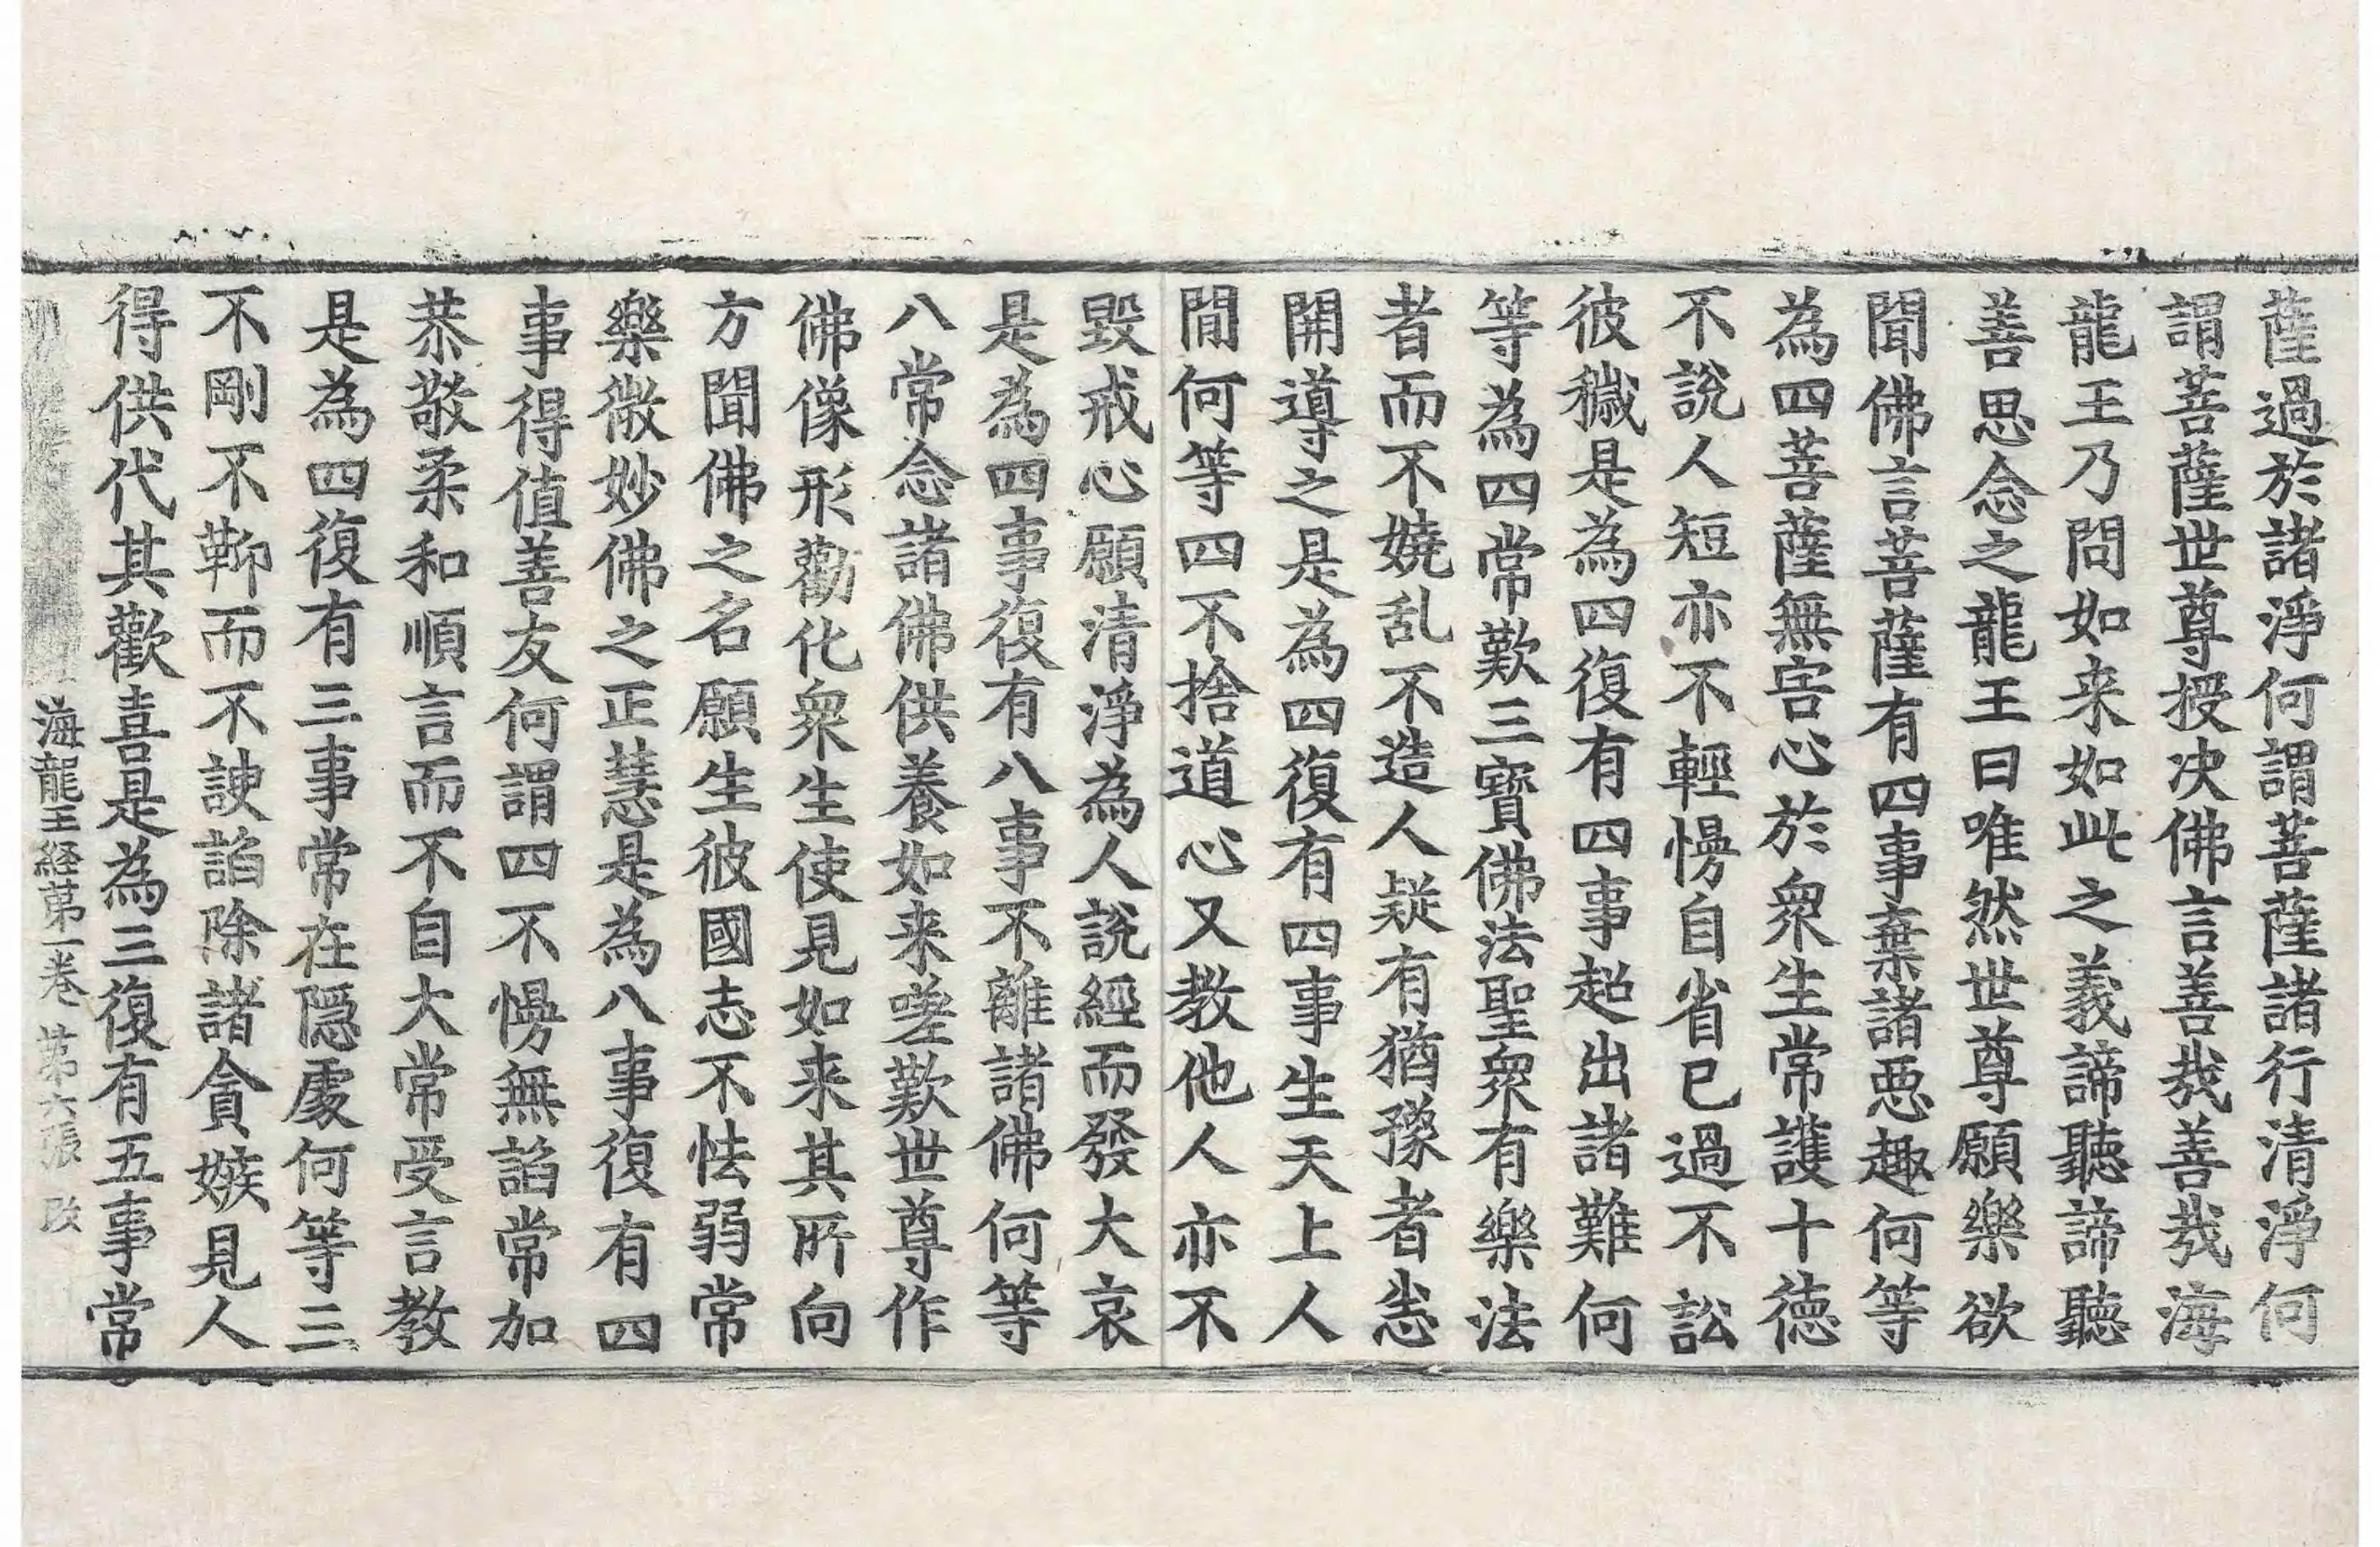 薩過於諸淨何謂菩薩諸行清淨何
謂菩薩世尊授决佛言善㢤善㢤海
龍王乃問如来如此之義諦聽諦聽
善思念之龍王曰唯然世尊願樂欲
聞佛言菩薩有四事棄諸惡趣何等
為四菩薩無害心於衆生常護十德
不說人短亦不輕慢自省已過不訟
彼穢是為四復有四事超出諸難何
等為四常歎三寶佛法聖衆有樂法
者而不嬈乱不造人疑有猶豫者恙
開導之是為四復有四事生天上人
閒何等四不捨道心又教他人亦不
毀戒心願清淨為人說經而發大哀
是為四事復有八事不離諸佛何等
八常念諸佛供養如来嗟歎世尊作
佛像形勸化衆生使見如来其所向
方聞佛之名願生彼國志不怯弱常
樂微妙佛之正慧是為八事復有四
事得值善友何謂四不慢無諂常加
恭敬柔和順言而不自大常受言教
是為四復有三事常在隱處何等三
不剛不鞕而不諛諂除諸貪嫉見人
得供代其歡喜是為三復有五事常
海龍王経第一卷 第六張 改